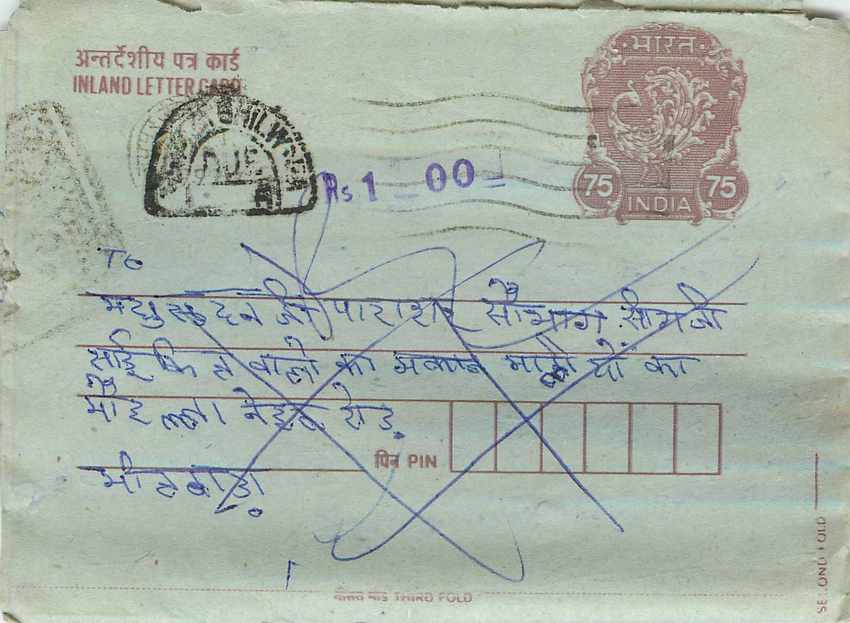 अन्तर्देशीय पत्र कार्ड
INLAND LETTER CARD
भारत
75 75
INDIA
BHILWARA
DUE
Rs 1 00
To
मधुसुदन जी पाराशर सौभाग सींग जी
साईकिल वालो का मकान मालीयों का
मोहल्ला नेहरू रोड़
पिन PIN
भीलवाड़ा
तीसरा मोड़ THIRD FOLD
SECOND FOLD